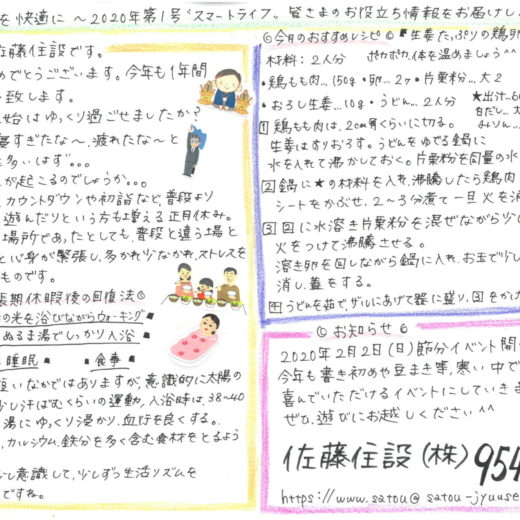 を快適に ～2020年第1号"スマートライフ"。皆さまのお役立ち情報をお届けし
佐藤住設です。
めでとうございます。今年も1年間
致します。
始はゆっくり過ごせましたか？
寒すぎたな～、疲れたな～と
も多いはず...
が起こるのでしょうか...
、カウントダウンや初詣など、普段より
遊んだりという方も増える正月休み。
場所であ,たとしても、普段と違う場と
と心身が緊張し、多かれ少なかれ、ストレスを
ものです。
長期休暇後の回復法
の光を浴びながらウォーキング
ぬるま湯でしっかり入浴
睡眠 ■食事
短いなかではありますが、意識的に太陽の
少し汗ばむくらいの運動。入浴時は、38～40
湯にゆっくり浸かり、血行を良くする。
、カルシウム、鉄分を多く含む食材をとるよう
し意識して、少しずつ生活リズムを
ですね。
◎今月のおすすめレシピ◎『生姜たっぷりの鶏卵
材料：２人分 ポカポカ、体を温めましょう^^
・鶏もも肉...150g・卵...2ヶ・片栗粉...大2
・おろし生姜...10g・うどん...2人分 ★出汁...6
白だし...大
みりん...
1 鶏もも肉は、2cm角くらいに切る。
生姜はすりおろす。うどんをゆでる鍋に
水を入れて沸かしておく。片栗粉を同量の水
2 鍋に★の材料を入れ、沸騰したら鶏肉
シートをかぶせ、2～3分煮て一旦火を消
3 2に水溶き片栗粉を混ぜながら少
火をつけて沸騰させる。
溶き卵を回しながら鍋に入れ、お玉で少し
消し、蓋をする。
4 うどんを茹で、ザルにあげて器に盛り、3をかけ
お知らせ
2020年2月2日(日)節分イベント開
今年も書き初めや豆まき等、寒い中で
喜んでいただけるイベントにしていきま
ぜひ、遊びにお越しください^^
佐藤住設(株)954
https://www.satou@satou-jyuuse